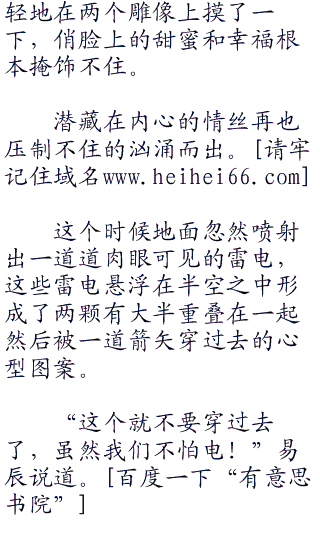 轻地在两个雕像上摸了一
下，俏脸上的甜蜜和幸福根
本掩饰不住。
潜藏在内心的情丝再也
压制不住的汹涌而出。[请牢
记住域名www.heihei66.com]
这个时候地面忽然喷射
出一道道肉眼可见的雷电，
这些雷电悬浮在半空之中形
成了两颗有大半重叠在一起
然后被一道箭矢穿过去的心
型图案。
“这个就不要穿过去
了，虽然我们不怕电！”易
辰说道。[百度一下“有意思
书院”]